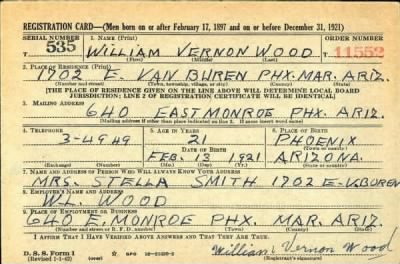 REGISTRATION CARD—(Men born on or after February 17, 1897 and on or before December 31, 1921)
SERIAL NUMBER 1. NAME (Print) ORDER NUMBER
T 535 WILLIAM VERNON WOOD T 11552
(First) (Middle) (Last)
2. PLACE OF RESIDENCE (Print)
1702 E. VAN BUREN PHX. MAR. ARIZ.
(Number and street) (Town, township, village, or city) (County) (State)
[THE PLACE OF RESIDENCE GIVEN ON THE LINE ABOVE WILL DETERMINE LOCAL BOARD
JURISDICTION; LINE 2 OF REGISTRATION CERTIFICATE WILL BE IDENTICAL]
3. MAILING ADDRESS
640 EAST MONROE PHX. ARIZ.
[Mailing address if other than place indicated on line 2. If same insert word same]
4. TELEPHONE 5. AGE IN YEARS 6. PLACE OF BIRTH
3-4949 21 PHOENIX
DATE OF BIRTH (Town or county)
FEB. 13 1921 ARIZONA.
(Exchange) (Number) (Mo.) (Day) (Yr.) (State or country)
7. NAME AND ADDRESS OF PERSON WHO WILL ALWAYS KNOW YOUR ADDRESS
MRS. STELLA SMITH 1702 E. V.BUREN
8. EMPLOYER'S NAME AND ADDRESS
W.L. WOOD
9. PLACE OF EMPLOYMENT OR BUSINESS
640 E. MONROE PHX. MAR. ARIZ.
(Number and street or R. F. D. number) (Town) (County) (State)
I AFFIRM THAT I HAVE VERIFIED ABOVE ANSWERS AND THAT THEY ARE TRUE.
D. S. S. Form 1 GPO William Vernon Wood
(Revised 1-1-42) (Registrant's signature)